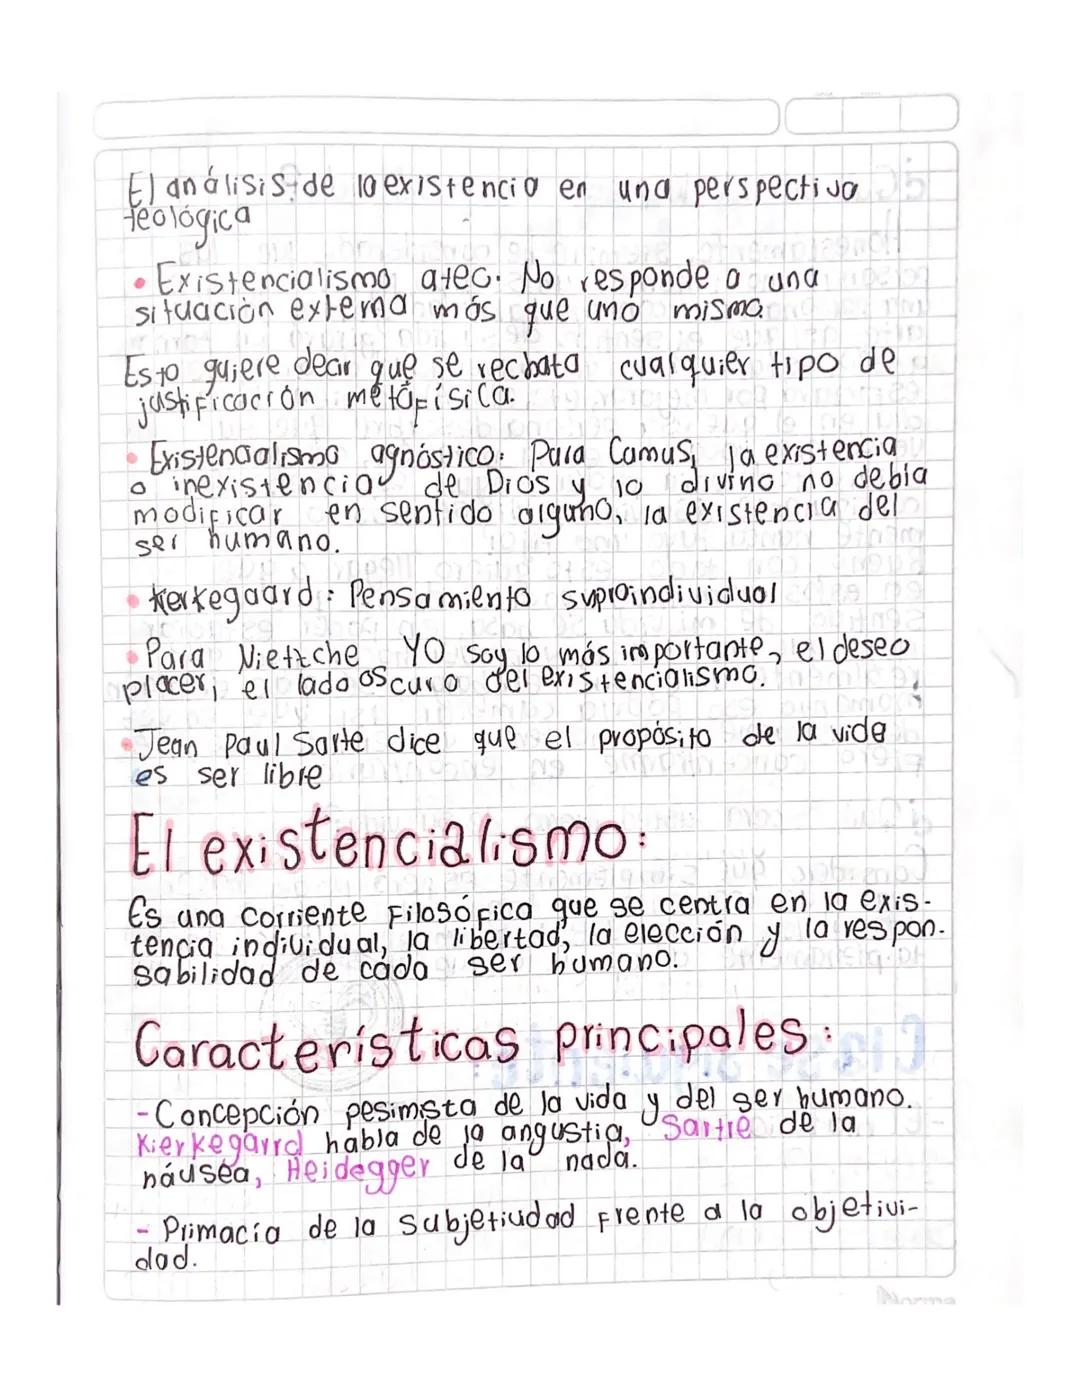 El análisis de la existencia en una perspectiva
teológica
• Existencialismo ateo. No responde a una
situación externa más que uno mismo.
Esto quiere decir que se rechata cualquier tipo de
justificación metáfísica.
• Existencialismo agnóstico: Para Camus, la existencia
o inexistencia de Dios y lo divino no debia
modificar en sentido alguno, la existencia del
ser humano.
• Kerkegaard: Pensamiento supraindividual
• Para Nietzche YO soy lo más importante, el deseo
placer, el lado oscuro del existencialismo.
• Jean Paul Sarte dice que el propósito de la vida
es ser libre
El existencialismo:
Es una corriente Filosófica que se centra en la exis-
tencia individual, la libertad, la elección y la respon-
sabilidad de cada ser humano.
Características principales:
- Concepción pesimista de la vida y del ser humano.
Kierkegarrd habla de la angustia, Sartre de la
náusea, Heidegger de la nada.
- Primacía de la subjetiudad Frente a la objetivi-
dad.
Norma